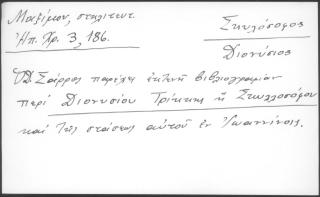 Μαξίμου, σταλιτωτ.
Ἠπ. Χρ. 3, 186.
Σκυλόσοφος
Διονύσιος
Δ. Σάρρος παρέχει ἐκτενῆ βιβλιογραφίαν
περί Διονυσίου Τρίκκης ἤ Σκυλλοσόφου
καί τῆς στάσεως αὐτοῦ ἐν Ἰωαννίνοις.